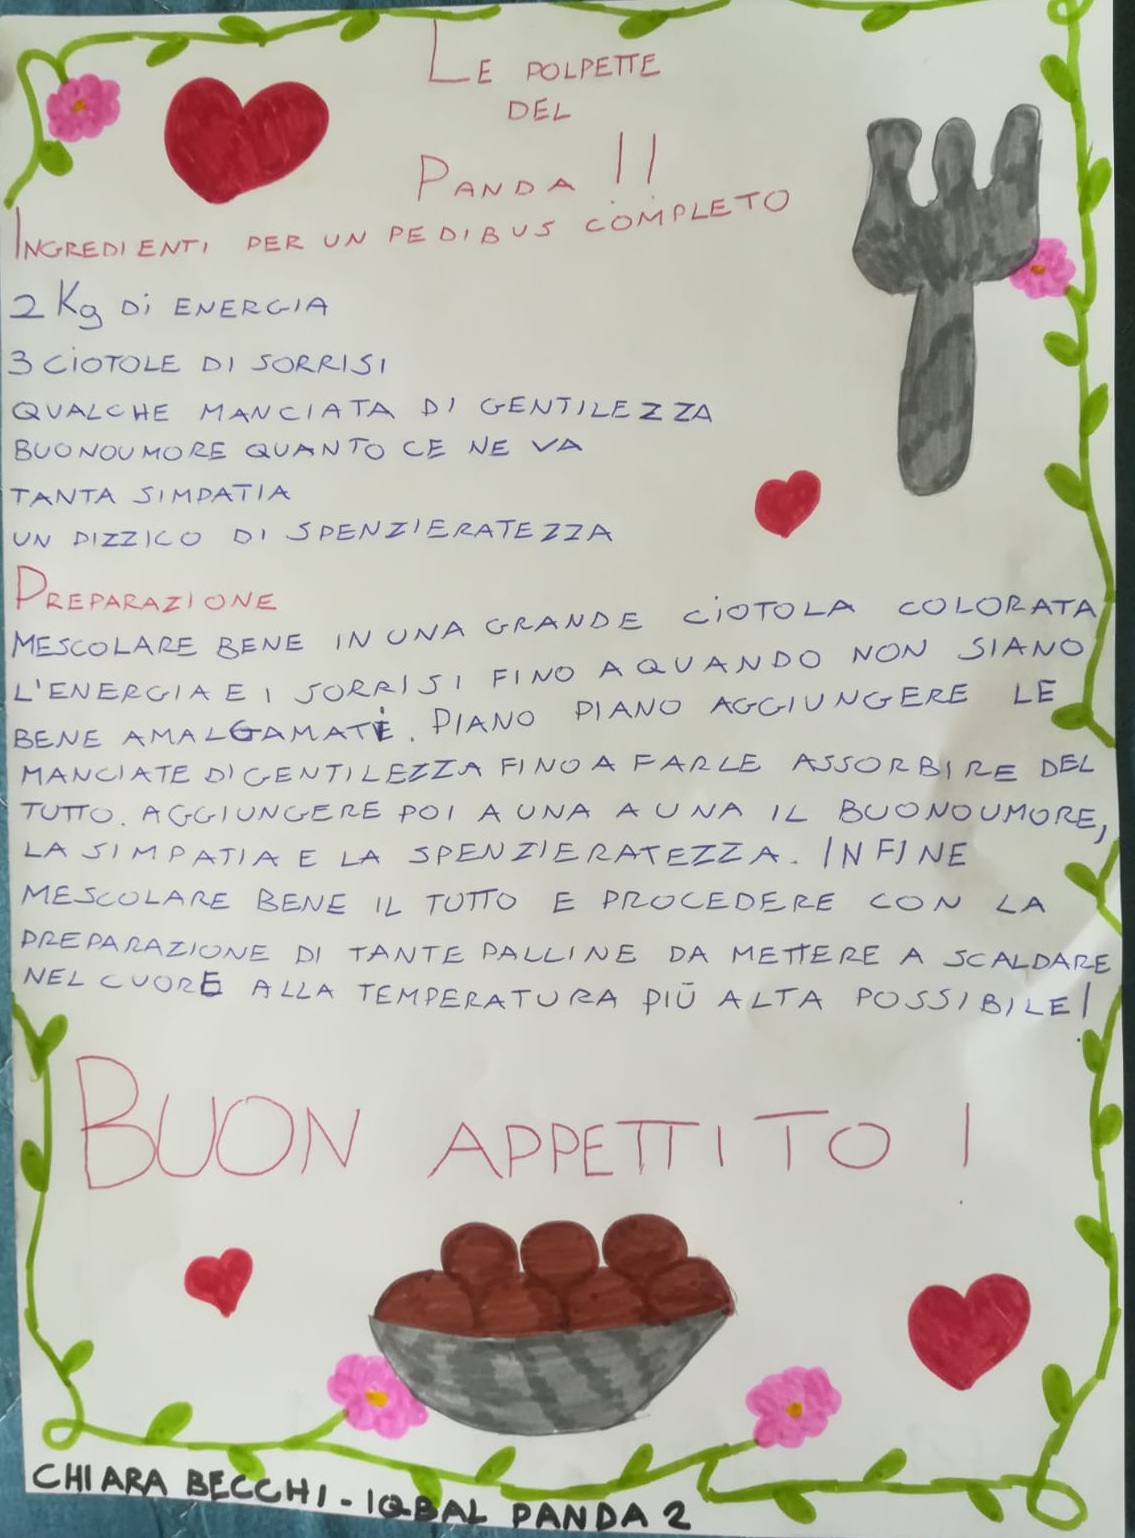 LE POLPETTE
DEL
PANDA !!
INGREDIENTI PER UN PEDIBUS COMPLETO
2 Kg Di ENERGIA
3 CIOTOLE DI SORRISI
QUALCHE MANCIATA DI GENTILEZZA
BUONOUMORE QUANTO CE NE VA
TANTA SIMPATIA
UN PIZZICO DI SPENZIERATEZZA
PREPARAZIONE
MESCOLARE BENE IN UNA GRANDE CIOTOLA COLORATA
L'ENERGIA E I SORRISI FINO A QUANDO NON SIANO
BENE AMALGAMATI. PIANO PIANO AGGIUNGERE LE
MANCIATE DI GENTILEZZA FINO A FARLE ASSORBIRE DEL
TUTTO. AGGIUNGERE POI A UNA A UNA IL BUONOUMORE,
LA SIMPATIA E LA SPENZIERATEZZA. INFINE
MESCOLARE BENE IL TUTTO E PROCEDERE CON LA
PREPARAZIONE DI TANTE PALLINE DA METTERE A SCALDARE
NEL CUORE ALLA TEMPERATURA PIÙ ALTA POSSIBILE!
BUON APPETTITO !
CHIARA BECCHI - IQBAL PANDA 2